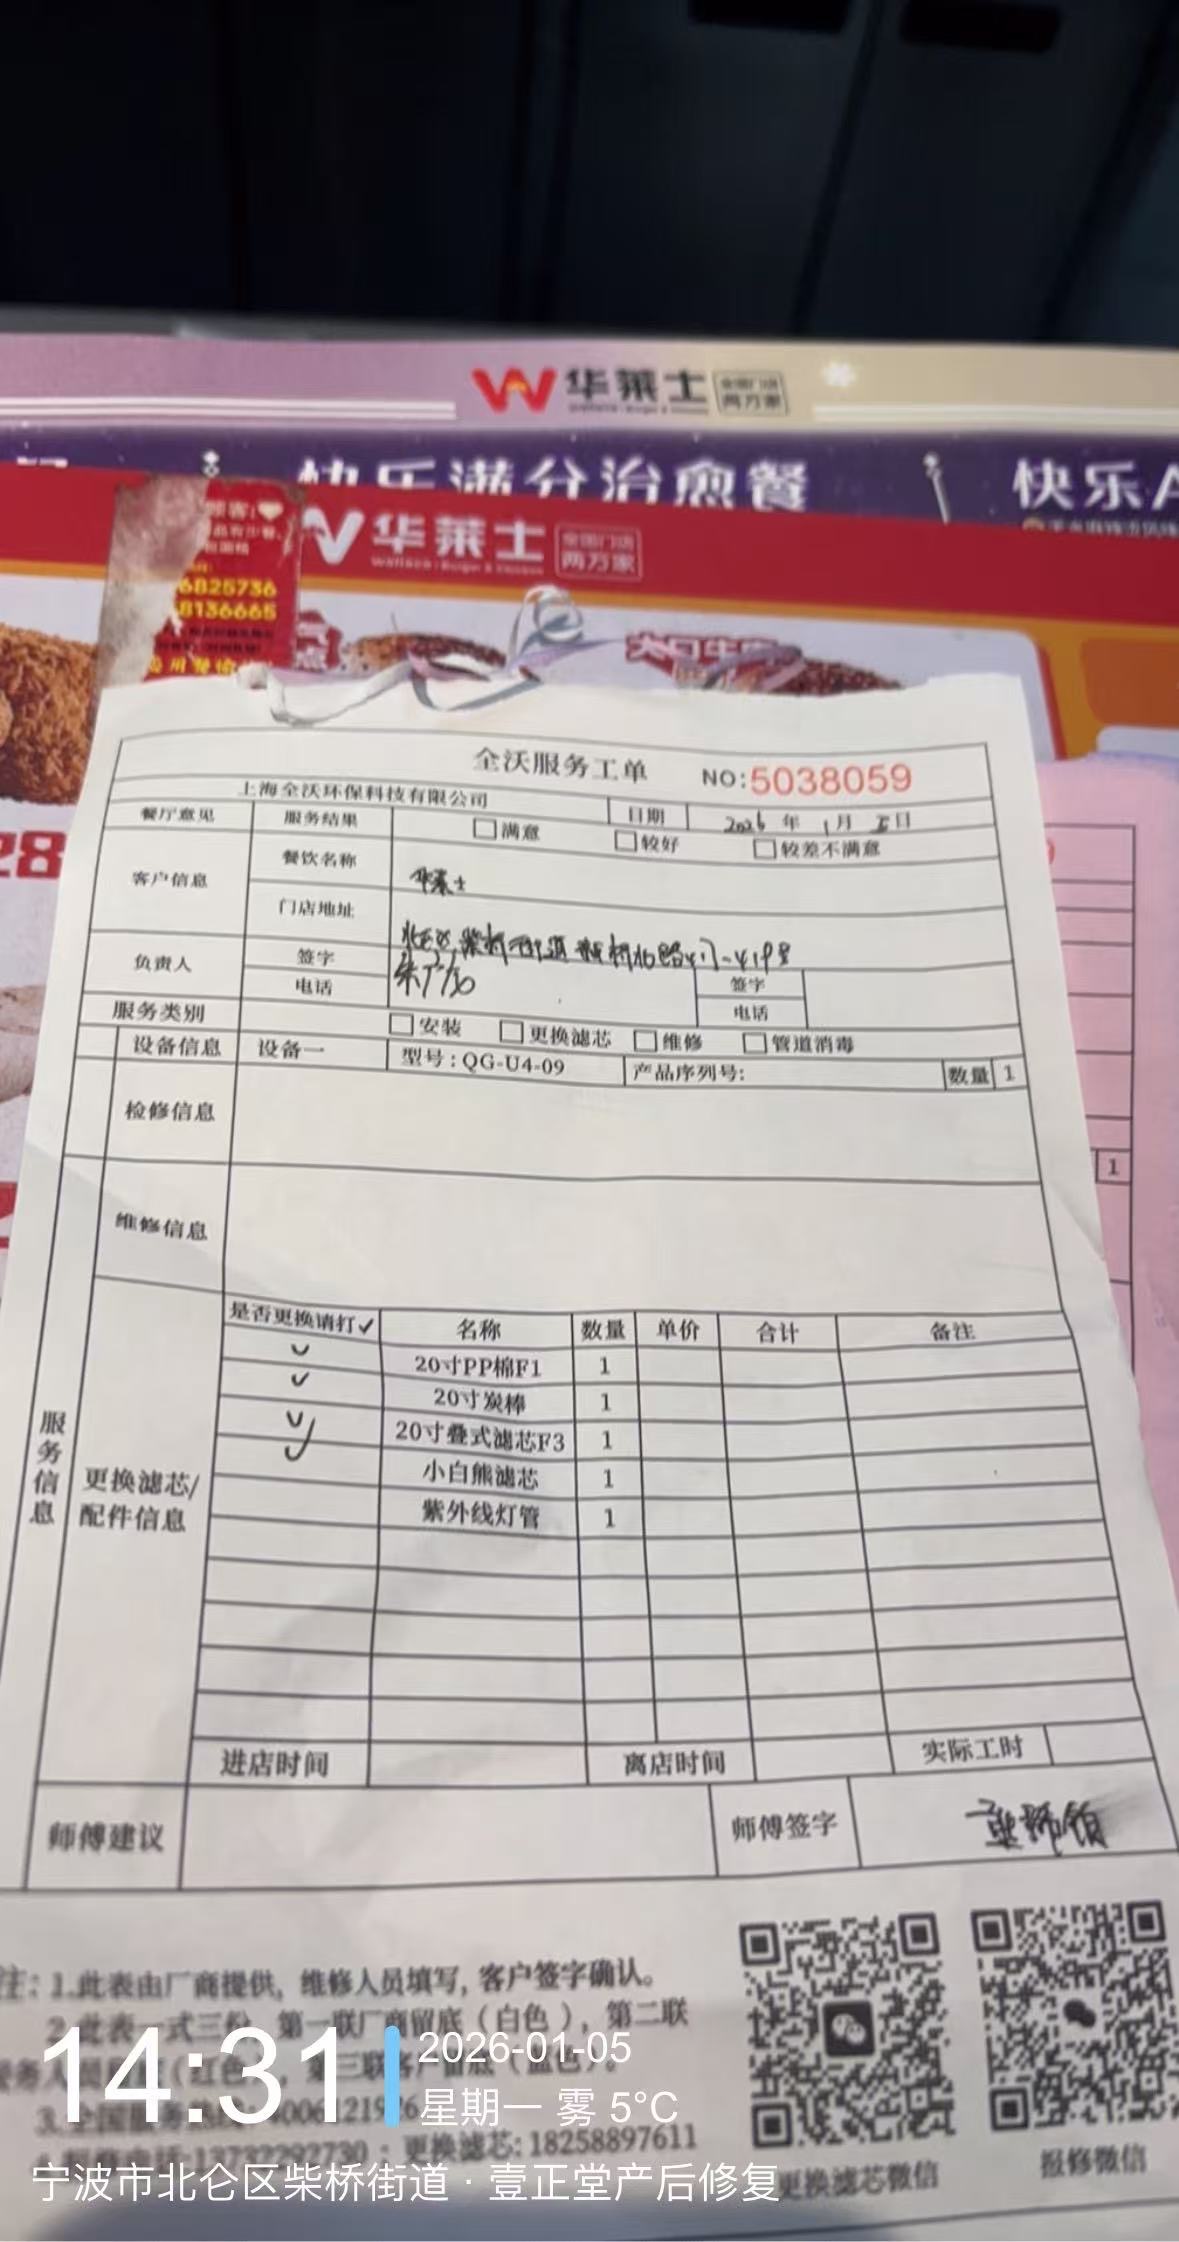 华莱士 全国门店 两万家
快乐满分治愈餐
快乐A
华莱士 全国门店 两万家
6825736
8136665
28
全沃服务工单 NO:5038059
上海全沃环保科技有限公司 日期 2026 年 1 月 5 日
餐厅意见 服务结果 满意 较好 较差不满意
客户信息 餐饮名称 华莱士
门店地址 北仑区 柴桥街道 柴桥北路417-419号
负责人 签字 签字
电话 电话
服务类别 安装 更换滤芯 维修 管道消毒
设备信息 设备一 型号:QG-U4-09 产品序列号: 数量 1
检修信息
1
维修信息
服务信息
更换滤芯/配件信息
是否更换请打✓ 名称 数量 单价 合计 备注
✓ 20寸PP棉F1 1
✓ 20寸炭棒 1
✓ 20寸叠式滤芯F3 1
✓ 小白熊滤芯 1
紫外线灯管 1
进店时间 离店时间 实际工时
师傅建议 师傅签字
注: 1.此表由厂商提供, 维修人员填写, 客户签字确认。
2.此表一式三份, 第一联厂商留底（白色）, 第二联
（红色
3.全国服务
14:31 2026-01-05
星期一 雾 5°C
报修电话:13732292730 ; 更换滤芯: 18258897611
宁波市北仑区柴桥街道 · 壹正堂产后修复
更换滤芯微信 报修微信